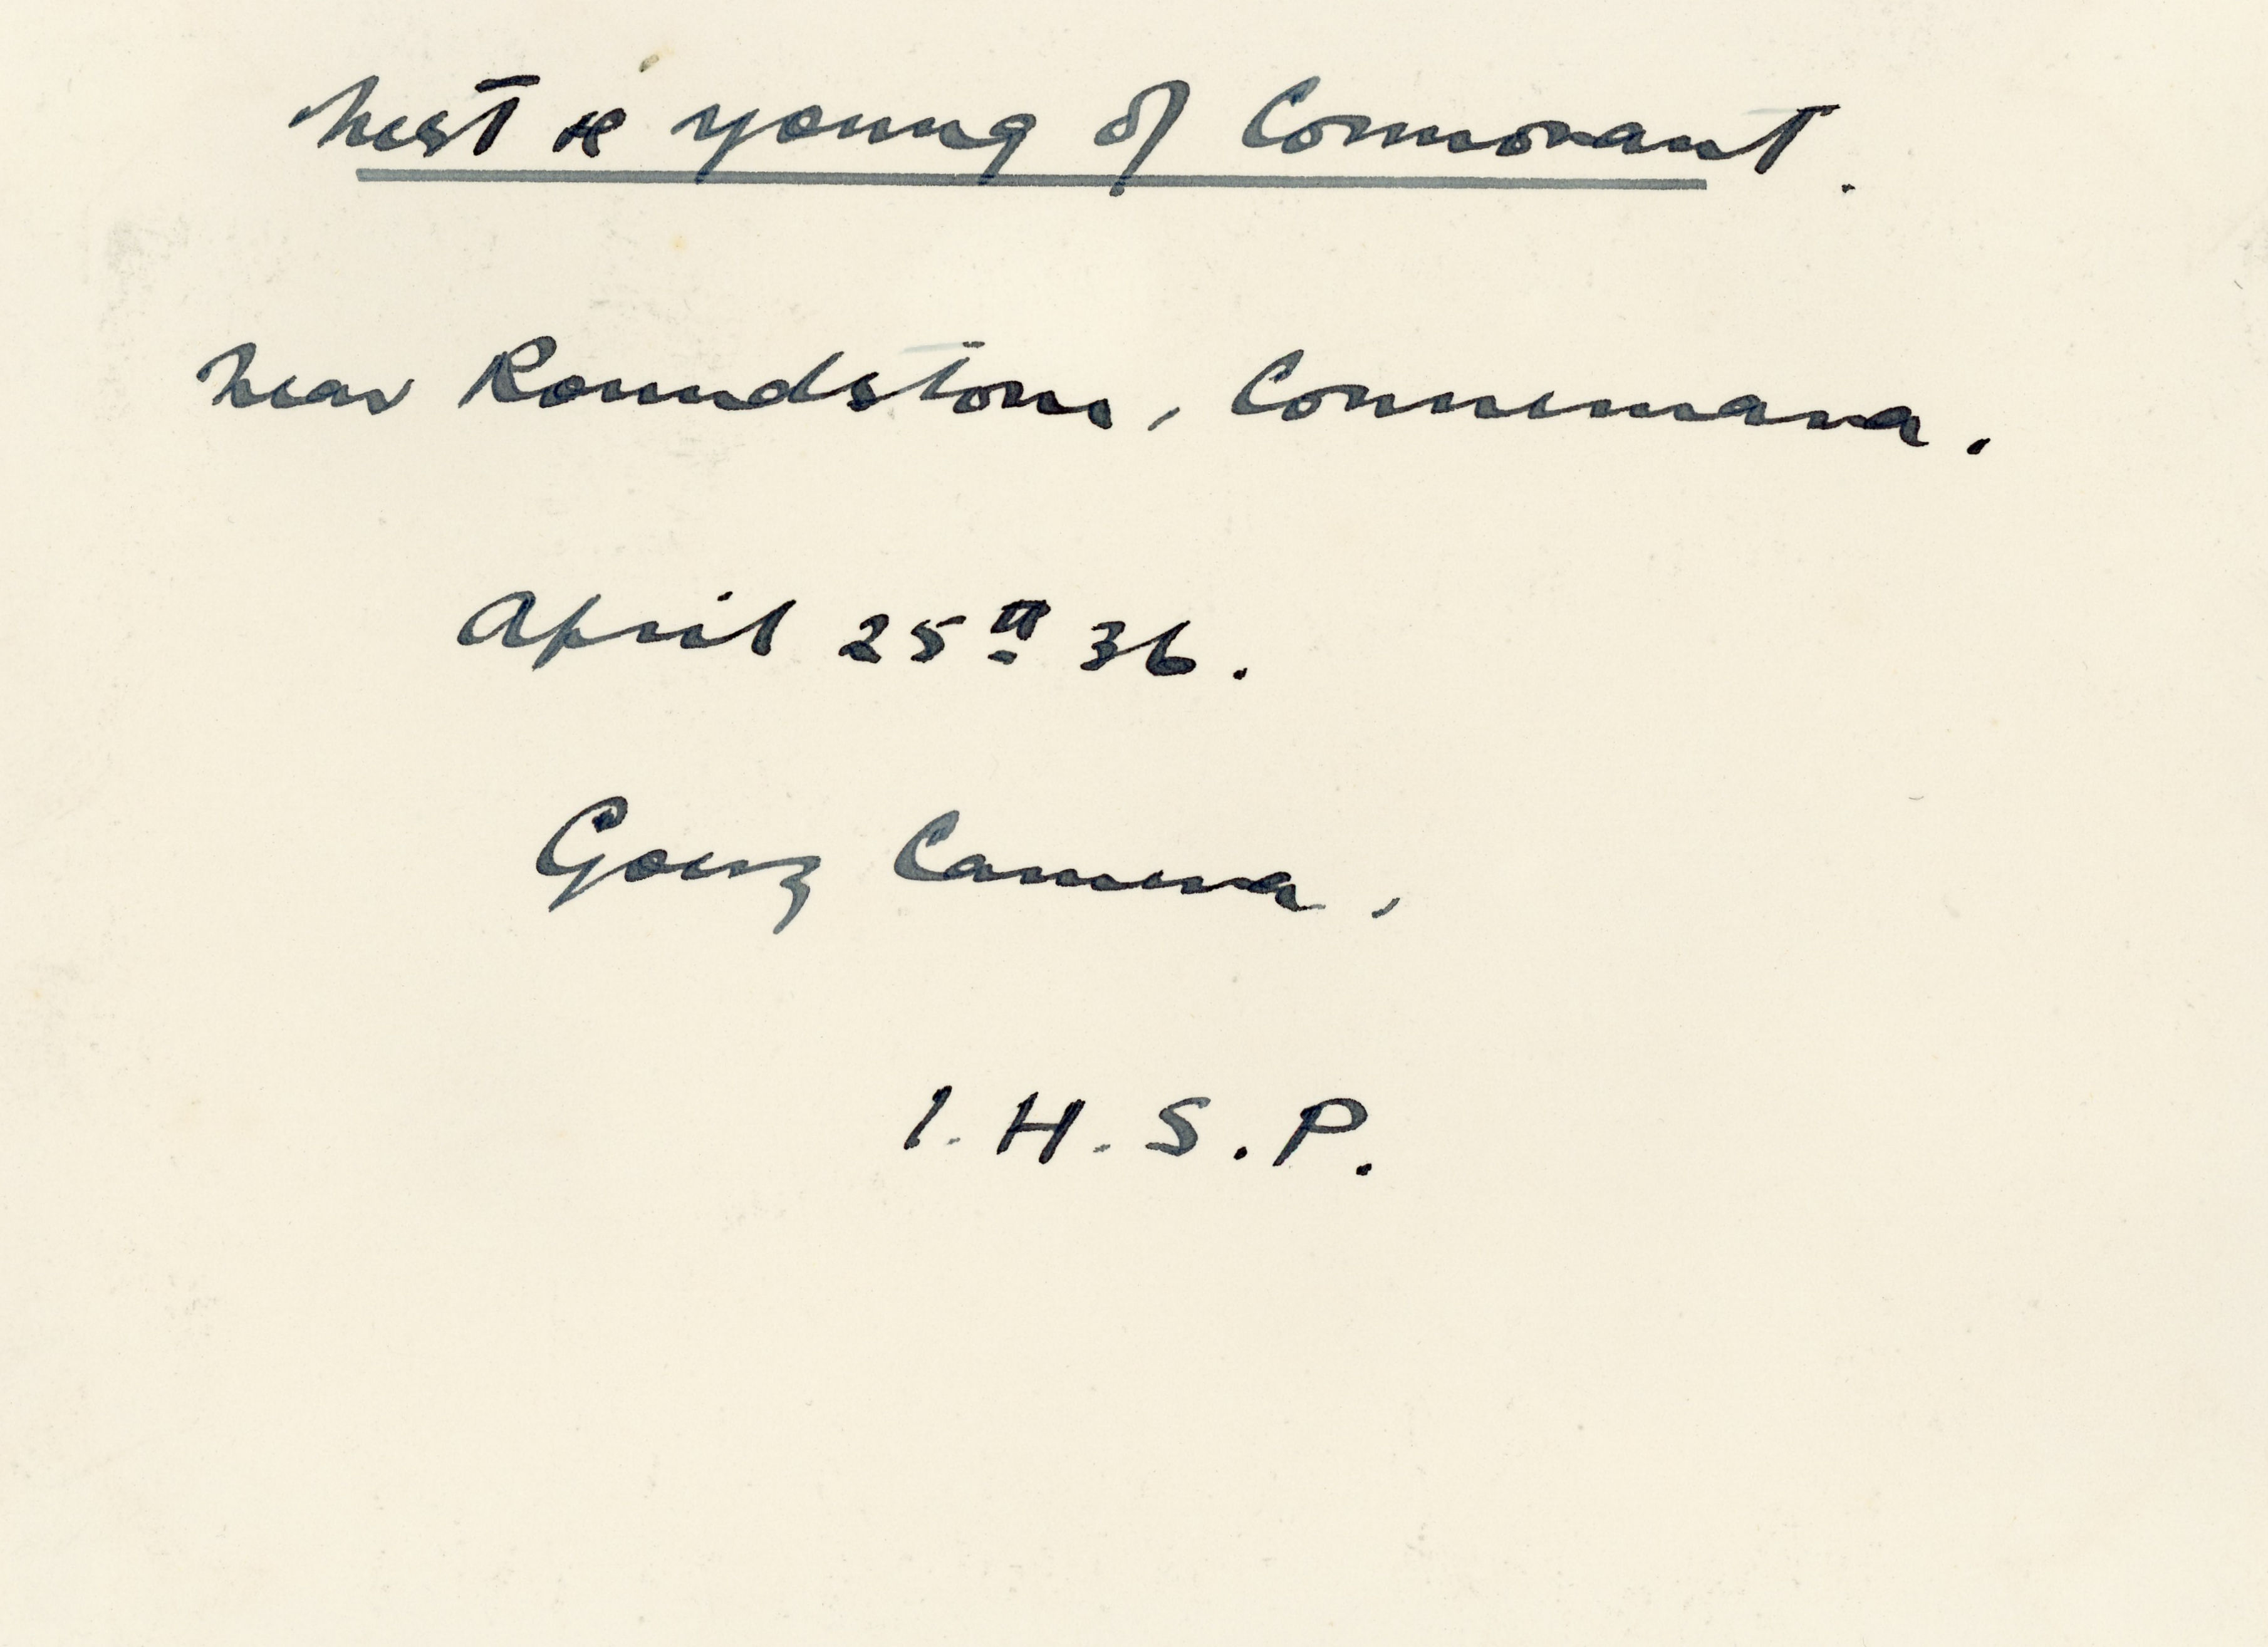 Nest & young of Cormorant.
Near Roundstone, Connemara.
April 25th 36.
Goerz Camera,
I. H. S. P.